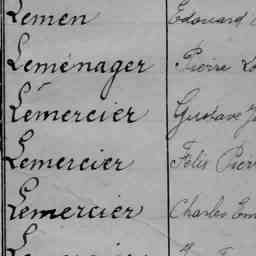 Lemen Edouard
Leménager Pierre
Lemercier Gustave
Lemercier Félix Pierr
Lemercier Charles Em